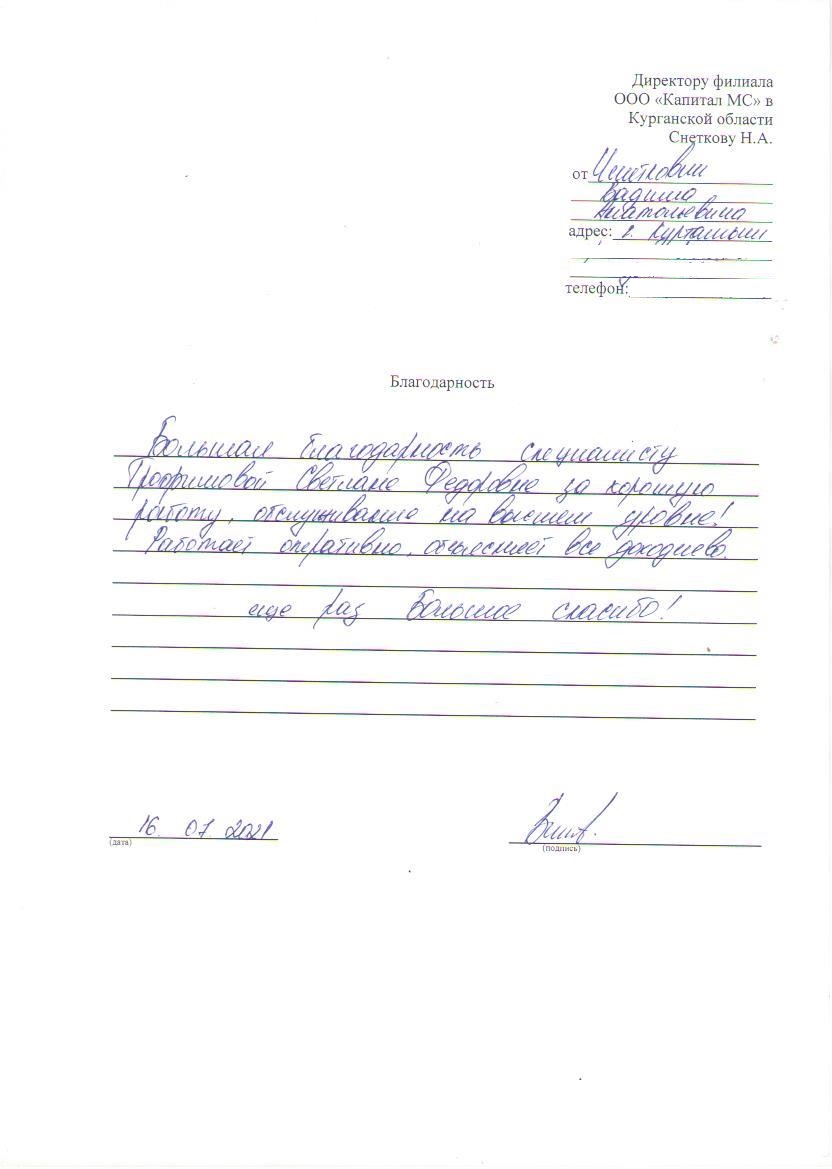 Директору филиала
ООО «Капитал МС» в
Курганской области
Снеткову Н.А.
от
Вадима
Анатольевича
адрес: г.
телефон:
Благодарность
Большая благодарность специалисту
Трофимовой Светлане Федоровне за хорошую
работу, обслуживание на высшем уровне!
Работает оперативно, объясняет все
еще раз Большое спасибо!
16. 07. 2021
(дата)
(подпись)